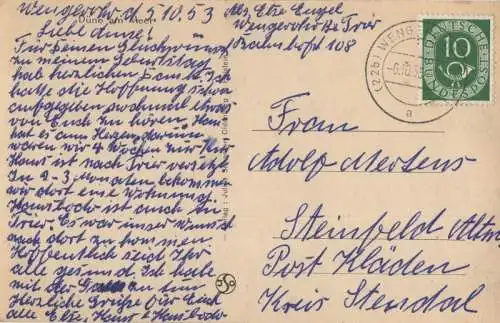 Wengerohr d. 5.10.53
Düne am Meer
Liebe Anne!
Für Deinen Glückwunsch
zu meinem Geburtstag
hab herzlichen Dank. Ich
hatte die Hoffnung schon
aufgegeben nochmal etwas
von Euch zu hören. Hans
hat es am Magen darum
waren wir 4 Wochen zur Kur
Hans ist nach Trier versetzt
In 2-3 Monaten bekommen
wir dort eine Wohnung
Hansbodo ist auch in
Trier. Es war unser Wunsch
nach dort zu kommen.
Hoffentlich seid Ihr
alle gesund. Ich habe
mit der
Herzliche Grüße für Euch
alle Else, Hans & Hansbodo
Abs. Else Engel
Wengerohr Bz Trier
Bahnhofstr 108
(22b) WENG
-6.10.5
a
DEUTSCHE BUNDESPOST
10
Frau
Adolf Mertens
Steinfeld Altm.
Post Kläden
Kreis Stendal